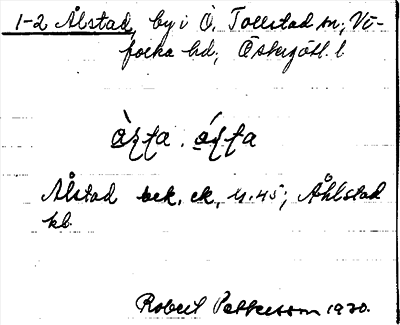 1-2 Ålstad, by i Ö. Tollstad sn; Vi-
folka hd, Östergötl. l
Ålstad bek. ek. 4:45; Åhlstad
kb.
Robert Pettersson 1930.